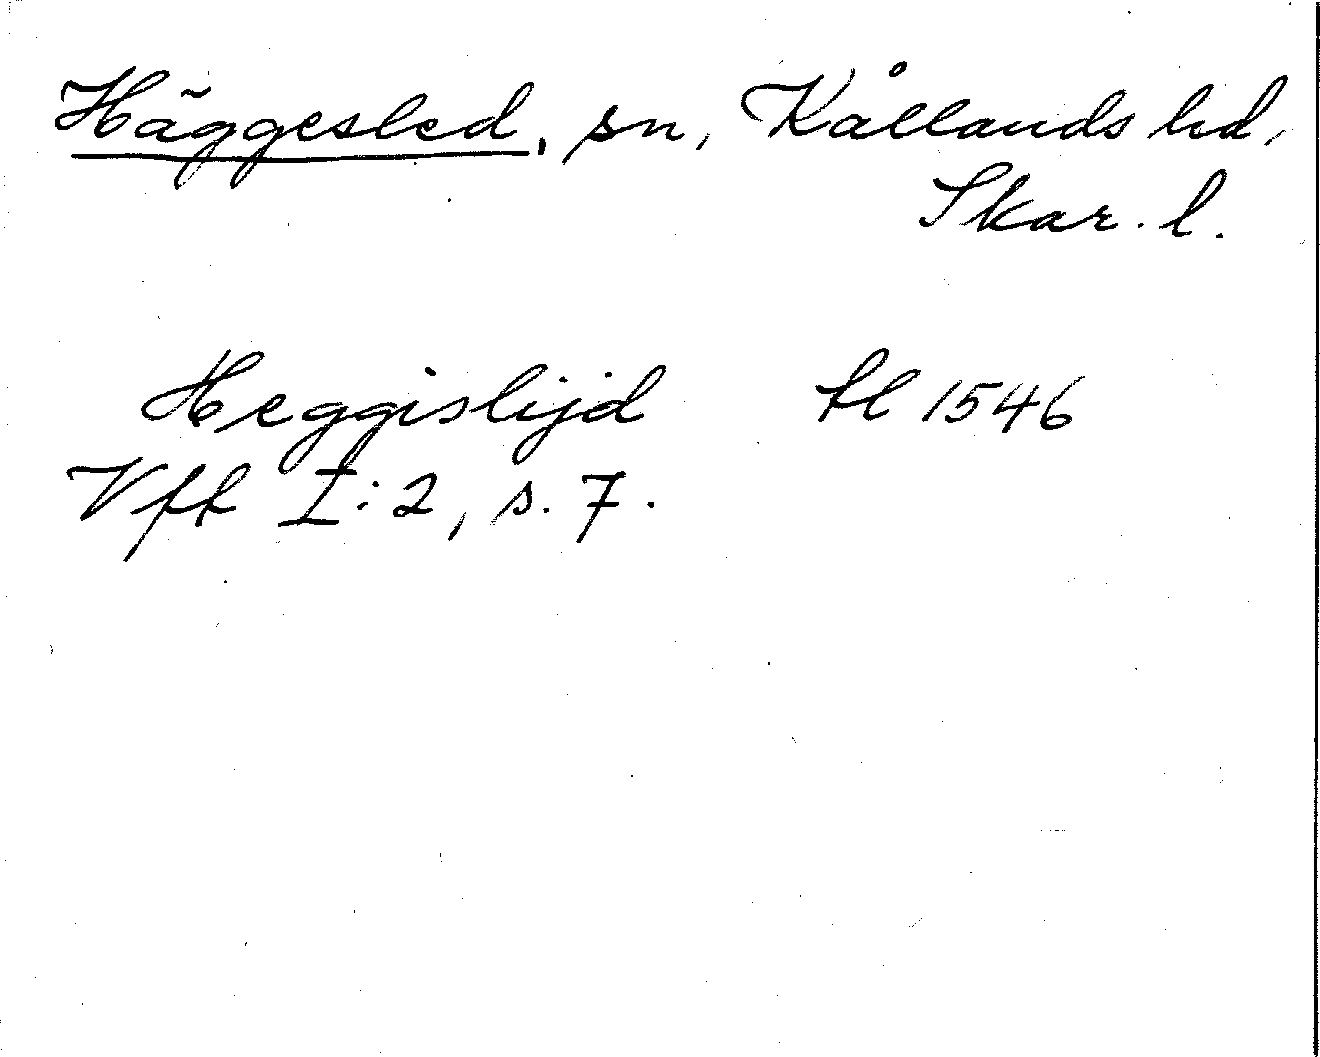 Häggesled, sn, Kållands hd,
Skar. l.
Heggislijd fl 1546
Vff I:2, s. 7.